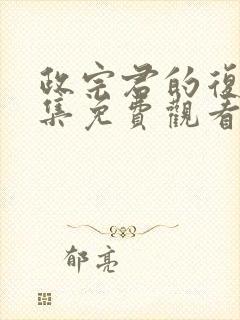 政宗君的復
集免費觀看
郁亮